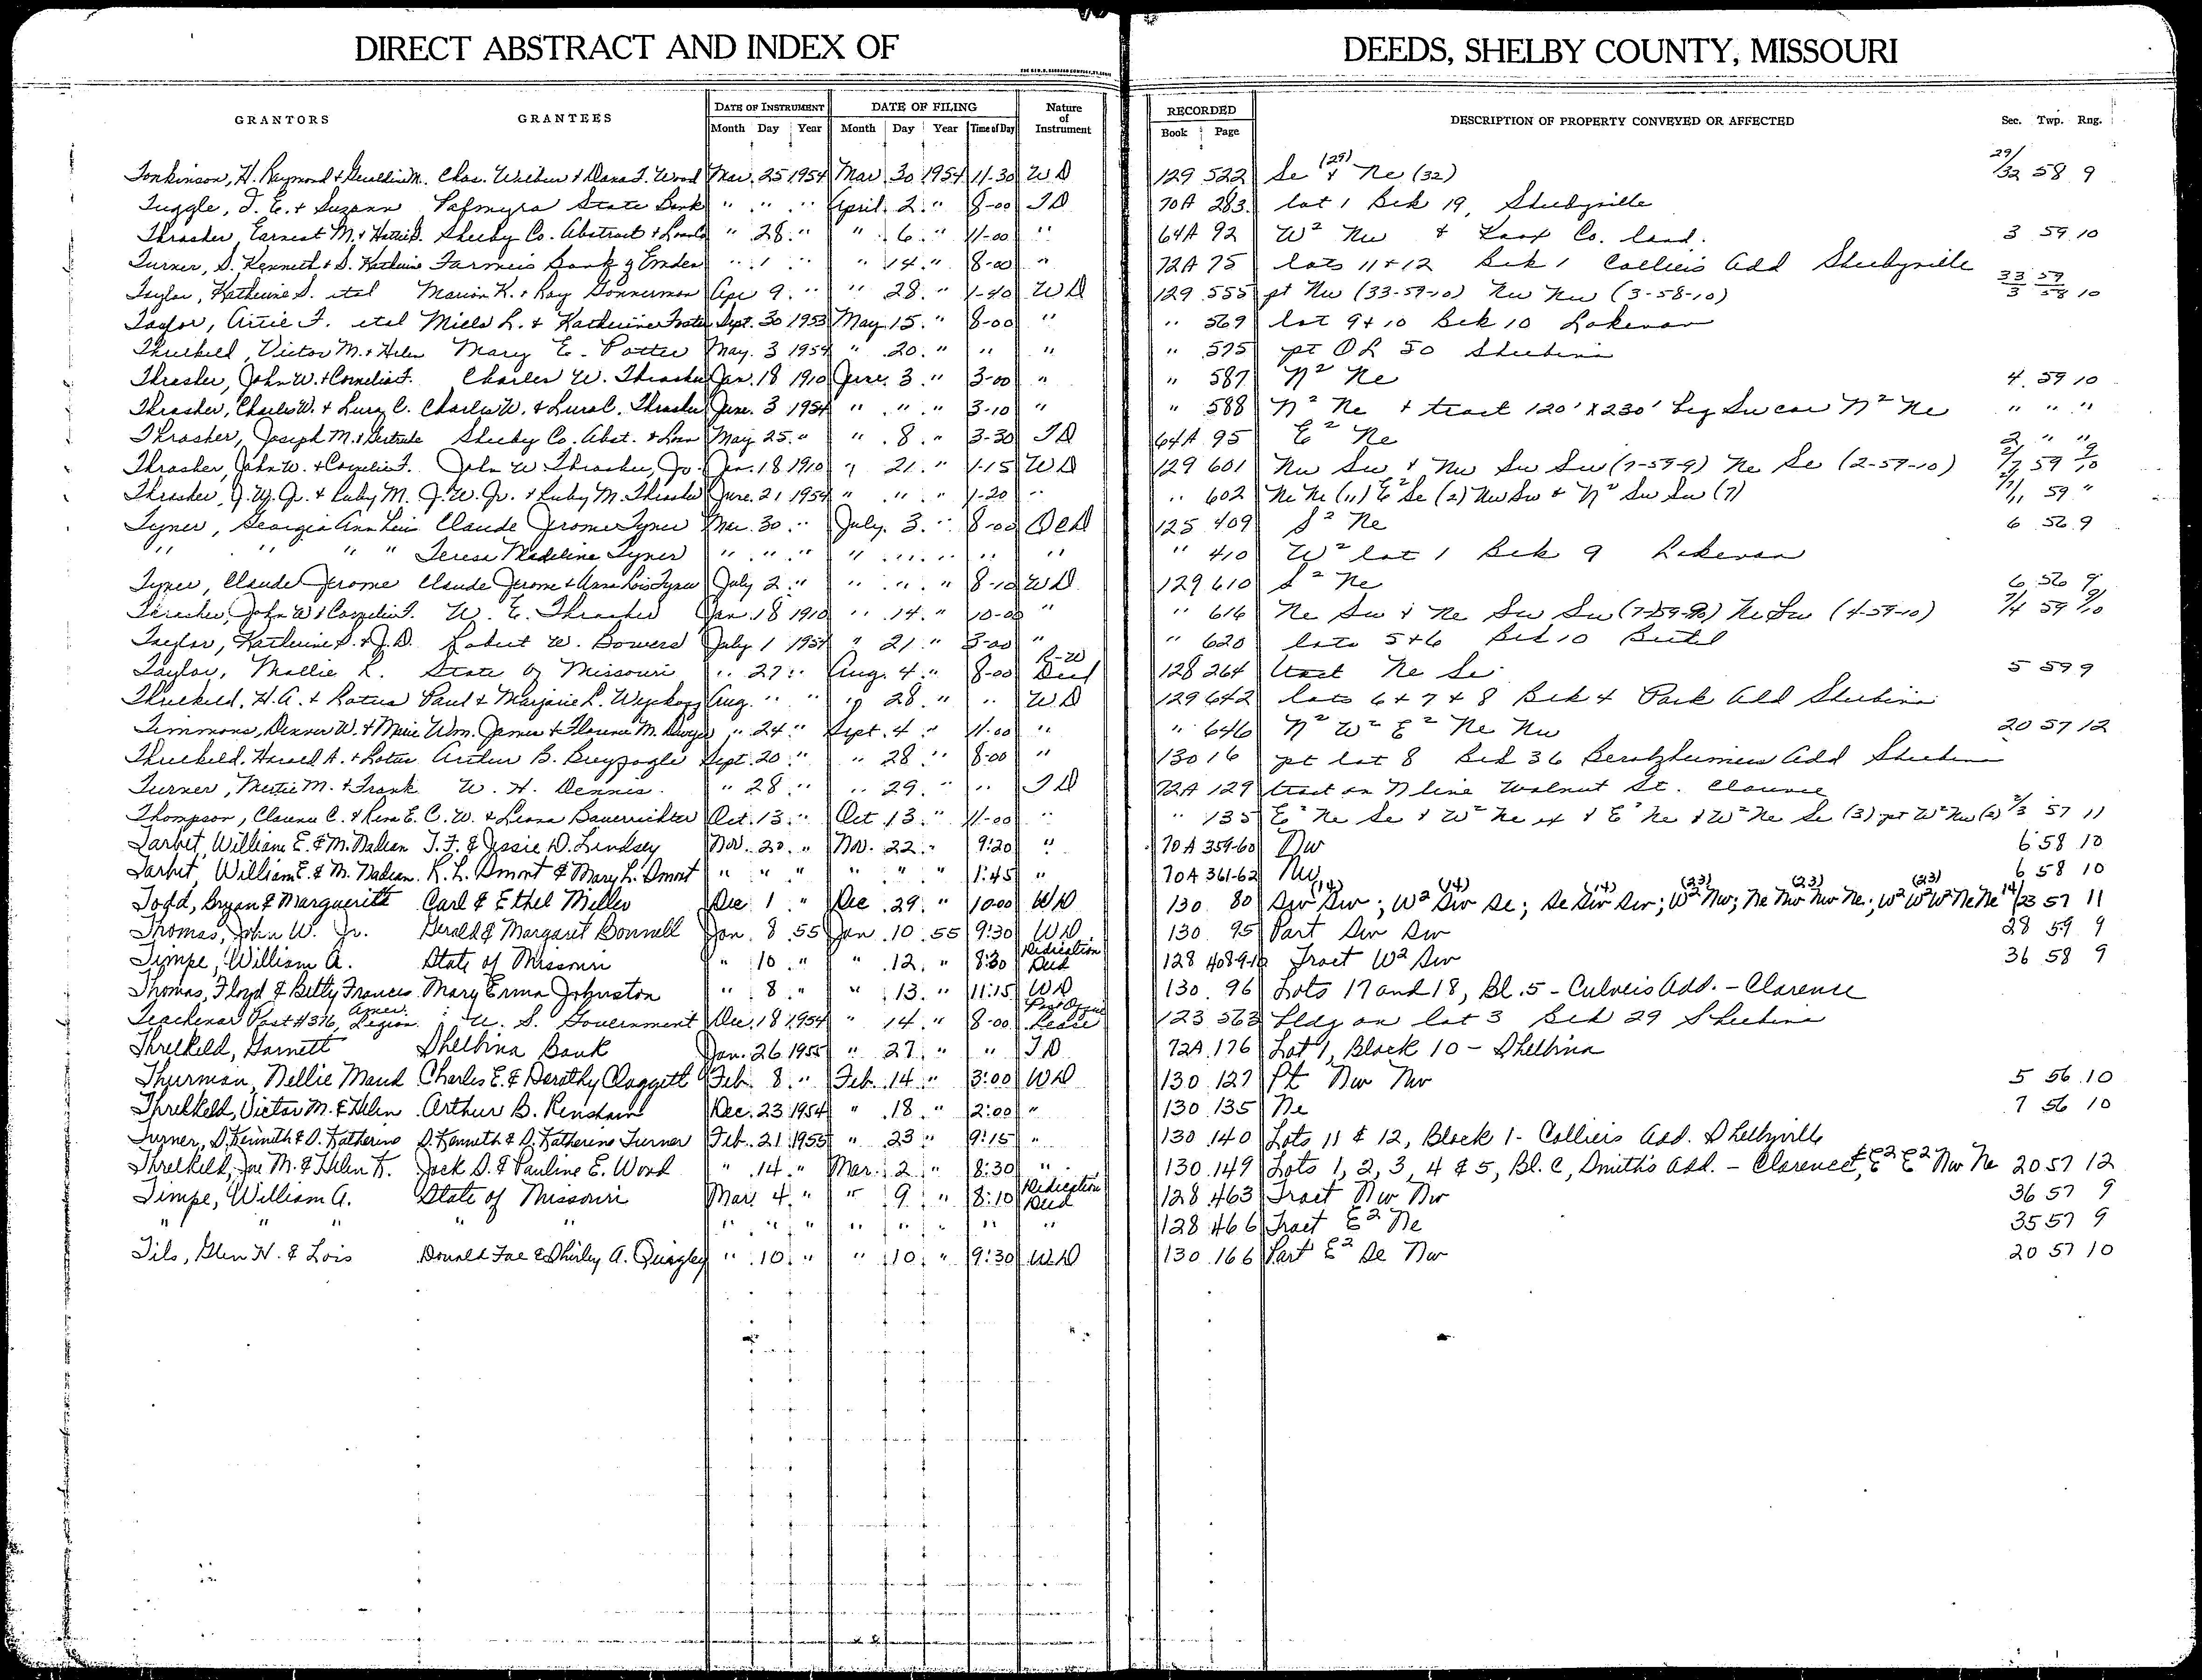 DIRECT ABSTRACT AND INDEX OF DEEDS, SHELBY COUNTY, MISSOURI
GRANTORS GRANTEES DATE OF INSTRUMENT Month Day Year DATE OF FILING Month Day Year Time of Day Nature of Instrument RECORDED Book Page DESCRIPTION OF PROPERTY CONVEYED OR AFFECTED Sec. Twp. Rng.
Tonkinson, H. Raymond & Geraldine M. Chas. Wilbur & Dana F. Wood Mar. 25 1954 Mar 30 1954 11-30 WD 129 522 Se (29) & Ne (32) 29/32 58 9
Tuggle, T. E. & Suzann Palmyra State Bank " " " April 2 " 8-00 TD 70A 283 lot 1 Blk 19, Shelbyville
Thrasher, Earnest M. & Hattie B. Shelby Co. Abstract & Loan Co " 28 " " 6 " 11-00 " 64A 92 W² Nw & Knox Co. land. 3 59 10
Turner, S. Kenneth & S. Katherine Farmers Bank of Emden " 1 " " 14 " 8-00 " 72A 75 lots 11 & 12 Blk 1 Colliers Add Shelbyville
Taylor, Katherine S. etal Marion K. & Ray Gonnerman Apr 9 " " 28 " 1-40 WD 129 555 pt Nw (33-59-10) Nw Nw (3-58-10) 33/3 59/58 10
Taylor, Artie F. etal Miles L. & Katherine Foster Sept. 30 1953 May 15 " 8-00 " " 569 lot 9 & 10 Blk 10 Lakenan
Threlkeld, Victor M. & Helen Mary E. Potter May 3 1954 " 20 " " " " 575 pt OL 50 Shelbina
Thrasher, John W. & Cornelia F. Charles W. Thrasher Jan. 18 1910 June 3 " 3-00 " " 587 N² Ne 4 59 10
Thrasher, Charles W. & Lura C. Charles W. & Lura C. Thrasher June 3 1954 " " " 3-10 " " 588 N² Ne & tract 120' X 230' beg Sw cor N² Ne " " "
Thrasher, Joseph M. & Gertrude Shelby Co. Abst. & Loan May 25 " " 8 " 3-30 TD 64A 95 E² Ne 2 " "
Thrasher, John W. & Cornelia F. John W Thrasher, Jr. Jan. 18 1910 " 21 " 1-15 WD 129 601 Nw Sw & Nw Sw Sw (7-59-9) Ne Se (2-59-10) 2/7 59 9/10
Thrasher, J. W. Jr. & Ruby M. J. W. Jr. & Ruby M. Thrasher June 21 1954 " " " 1-20 " " 602 Ne Ne (11) E² Se (2) Nw Sw & N² Sw Sw (7) 59 "
Tyner, Georgia Ann Claude Jerome Tyner Mar. 30 " July 3 " 8-00 QCD 125 409 S² Ne 6 56 9
" " " " Teresa Madeline Tyner " " " " " " " " " 410 W² lot 1 Blk 9 Lakenan
Tyner, Claude Jerome Claude Jerome & Anna Lois Tyner July 2 " " " " 8-10 WD 129 610 S² Ne 6 56 9
Thrasher, John W & Cornelia F. W. E. Thrasher Jan 18 1910 " 14 " 10-00 " " 616 Ne Sw & Ne Sw Sw (7-59-9) Ne Sw (4-59-10) 7/4 59 9/10
Taylor, Katherine S. & J. D. Robert W. Bowers July 1 1954 " 21 " 3-00 " " 620 lots 5 & 6 Blk 10 Bethel
Taylor, Mollie R. State of Missouri " 27 " Aug. 4 " 8-00 R-W Deed 128 264 tract Ne Se 5 59 9
Threlkeld, H. A. & Lotus Paul & Marjorie L. Wyckoff Aug. " " " 28 " " WD 129 642 lots 6 & 7 & 8 Blk 4 Park Add Shelbina
Timmons, Denver W. & Marie Wm. James & Florence M. Dwyer " 24 " Sept. 4 " 11-00 " " 646 N² W² E² Ne Nw 20 57 12
Threlkeld, Harold A. & Lotus Arthur B. Breyfogle Sept. 20 " " 28 " 8-00 " 130 16 pt lot 8 Blk 36 Add Shelbina
Turner, Mertie M. & Frank W. H. Dennis " 28 " " 29 " " TD 72A 129 tract on N line Walnut St. Clarence
Thompson, Clarence C. & Rena E. C. W. & Leona Bauerrichter Oct. 13 " Oct 13 " 11-00 " " 135 E² Ne Se & W² Ne & E² Ne & W² Ne Se (3) pt W² Nw (2) 2/3 57 11
Tarbet, William E. & M. Nadean T. F. & Jessie D. Lindsey Nov. 20 " Nov. 22 " 9:20 " 70A 359-60 Nw 6 58 10
Tarbet, William E. & M. Nadean R. L. Smoot & Mary L. Smoot " " " " " " 1:45 " 70A 361-62 Nw 6 58 10
Todd, Bryan & Marguerite Carl & Ethel Miller Dec 1 " Dec 29 " 10:00 WD 130 80 Sw Sw (14); W² Sw Se (14); Se Sw Sw (14); W² Nw (23); Ne Nw Nw Ne (23); W² W² W² Ne Ne (23) 14/23 57 11
Thomas, John W. Jr. Gerald & Margaret Bonnell Jan. 8 55 Jan. 10 55 9:30 WD 130 95 Part Sw Sw 28 59 9
Timpe, William A. State of Missouri " 10 " " 12 " 8:30 Dedication Deed 128 408 9-10 Tract W² Sw 36 58 9
Thomas, Floyd & Betty Frances Mary Erma Johnston " 8 " " 13 " 11:15 WD 130 96 Lots 17 and 18, Bl. 5 - Culvers Add. - Clarence
Teachenar Post #376, Amer. Legion U. S. Government Dec. 18 1954 " 14 " 8-00 Post Office Lease 123 563 bldg on lot 3 Blk 29 Shelbina
Threlkeld, Garnett Shelbina Bank Jan. 26 1955 " 27 " " TD 72A 176 Lot 1, Block 10 - Shelbina
Thurman, Nellie Maud Charles E. & Dorothy Claggett Feb. 8 " Feb. 14 " 3:00 WD 130 127 Pt Nw Nw 5 56 10
Threlkeld, Victor M. & Helen Arthur B. Renshaw Dec. 23 1954 " 18 " 2:00 " 130 135 Ne 7 56 10
Turner, S. Kenneth & S. Katherine S. Kenneth & S. Katherine Turner Feb. 21 1955 " 23 " 9:15 " 130 140 Lots 11 & 12, Block 1 - Colliers Add. Shelbyville
Threlkeld, Joe M. & Helen K. Jack D. & Pauline E. Wood " 14 " Mar. 2 " 8:30 " 130 149 Lots 1, 2, 3, 4 & 5, Bl. C, Smith's Add. - Clarence & E² E² Nw Ne 20 57 12
Timpe, William A. State of Missouri Mar. 4 " " 9 " 8:10 Dedication Deed 128 463 Tract Nw Nw 36 57 9
" " " " " " " " " " " " " 128 466 Tract E² Ne 35 57 9
Tils, Glen H. & Lois Donald Fae & Shirley A. Quigley " 10 " " 10 " 9:30 WD 130 166 Part E² Se Nw 20 57 10